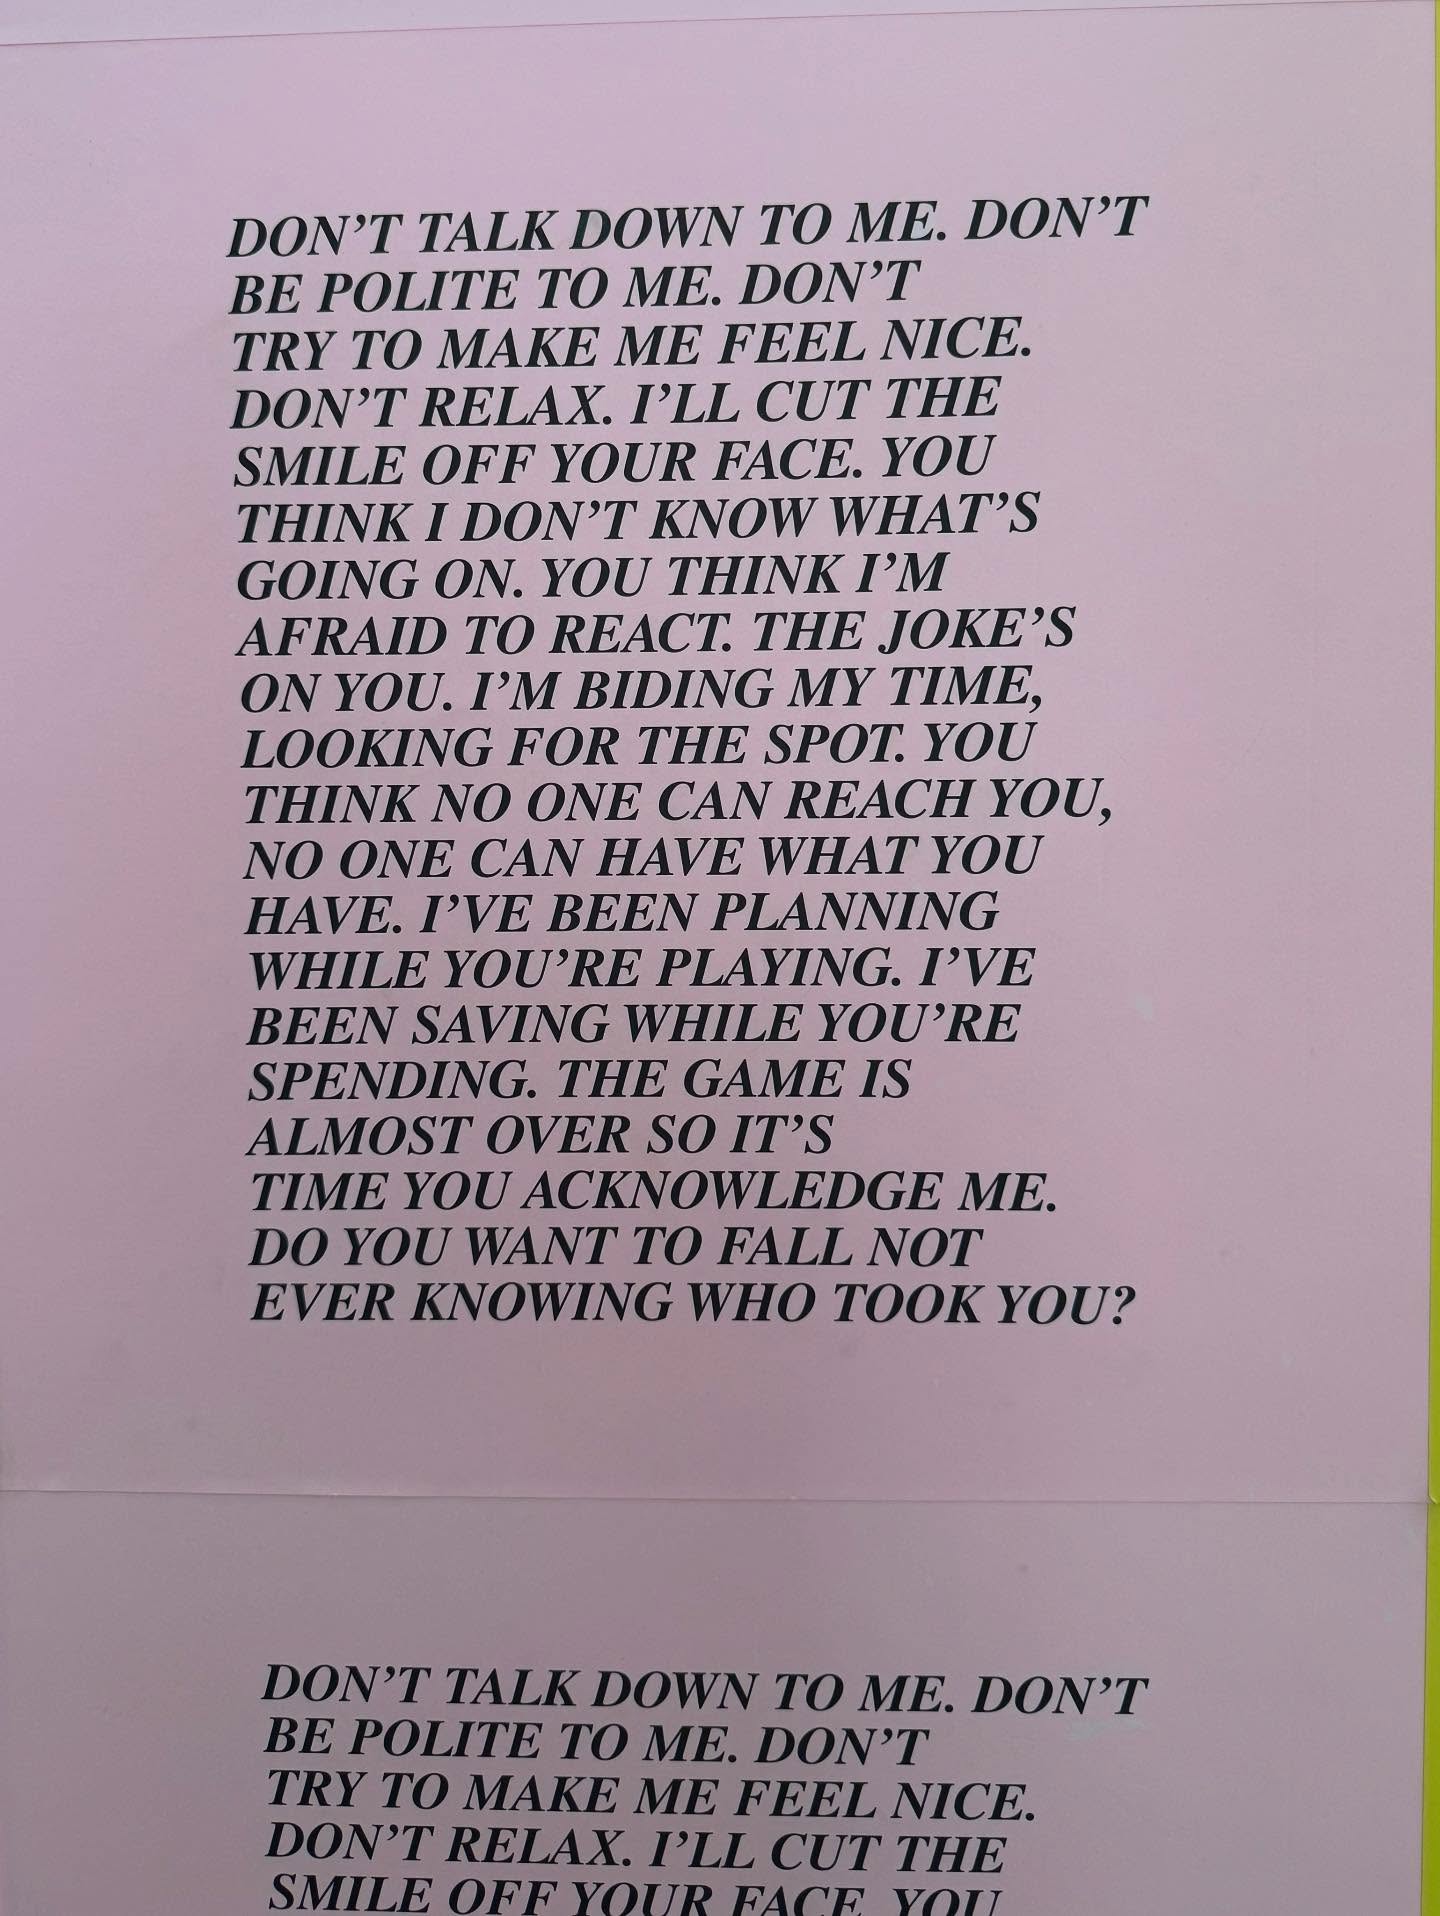 DON'T TALK DOWN TO ME. DON'T
BE POLITE TO ME. DON'T
TRY TO MAKE ME FEEL NICE.
DON'T RELAX. I'LL CUT THE
SMILE OFF YOUR FACE. YOU
THINK I DON'T KNOW WHAT'S
GOING ON. YOU THINK I'M
AFRAID TO REACT. THE JOKE'S
ON YOU. I'M BIDING MY TIME,
LOOKING FOR THE SPOT. YOU
THINK NO ONE CAN REACH YOU,
NO ONE CAN HAVE WHAT YOU
HAVE. I'VE BEEN PLANNING
WHILE YOU'RE PLAYING. I'VE
BEEN SAVING WHILE YOU'RE
SPENDING. THE GAME IS
ALMOST OVER SO IT'S
TIME YOU ACKNOWLEDGE ME.
DO YOU WANT TO FALL NOT
EVER KNOWING WHO TOOK YOU?
DON'T TALK DOWN TO ME. DON'T
BE POLITE TO ME. DON'T
TRY TO MAKE ME FEEL NICE.
DON'T RELAX. I'LL CUT THE
SMILE OFF YOUR FACE. YOU